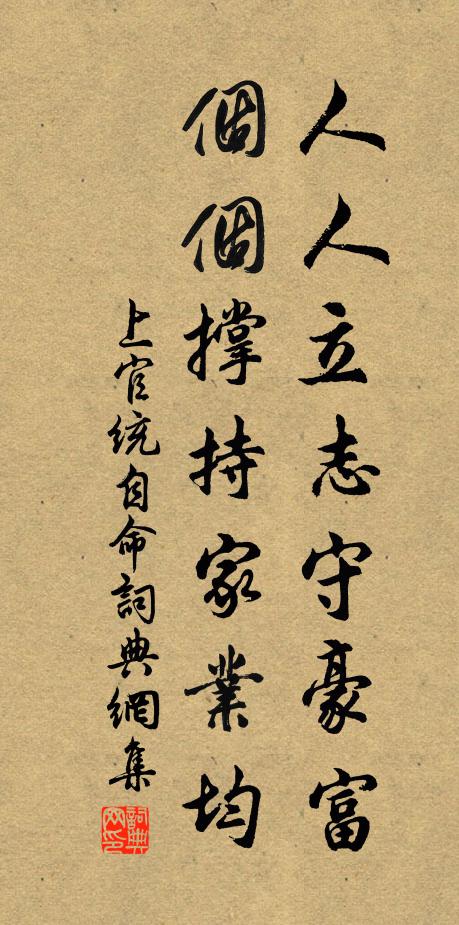 人人立志守豪富
個個撐持家業均
上官統自命詞典網集
詞典網印